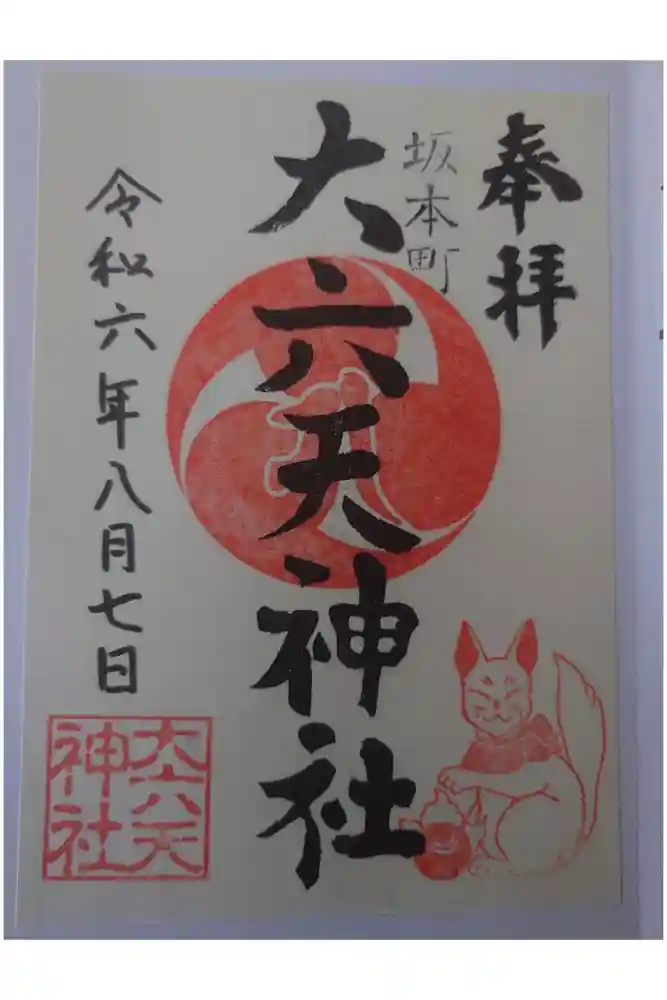 奉拝
坂本町
大六天神社
令和六年八月七日
大六天
神社